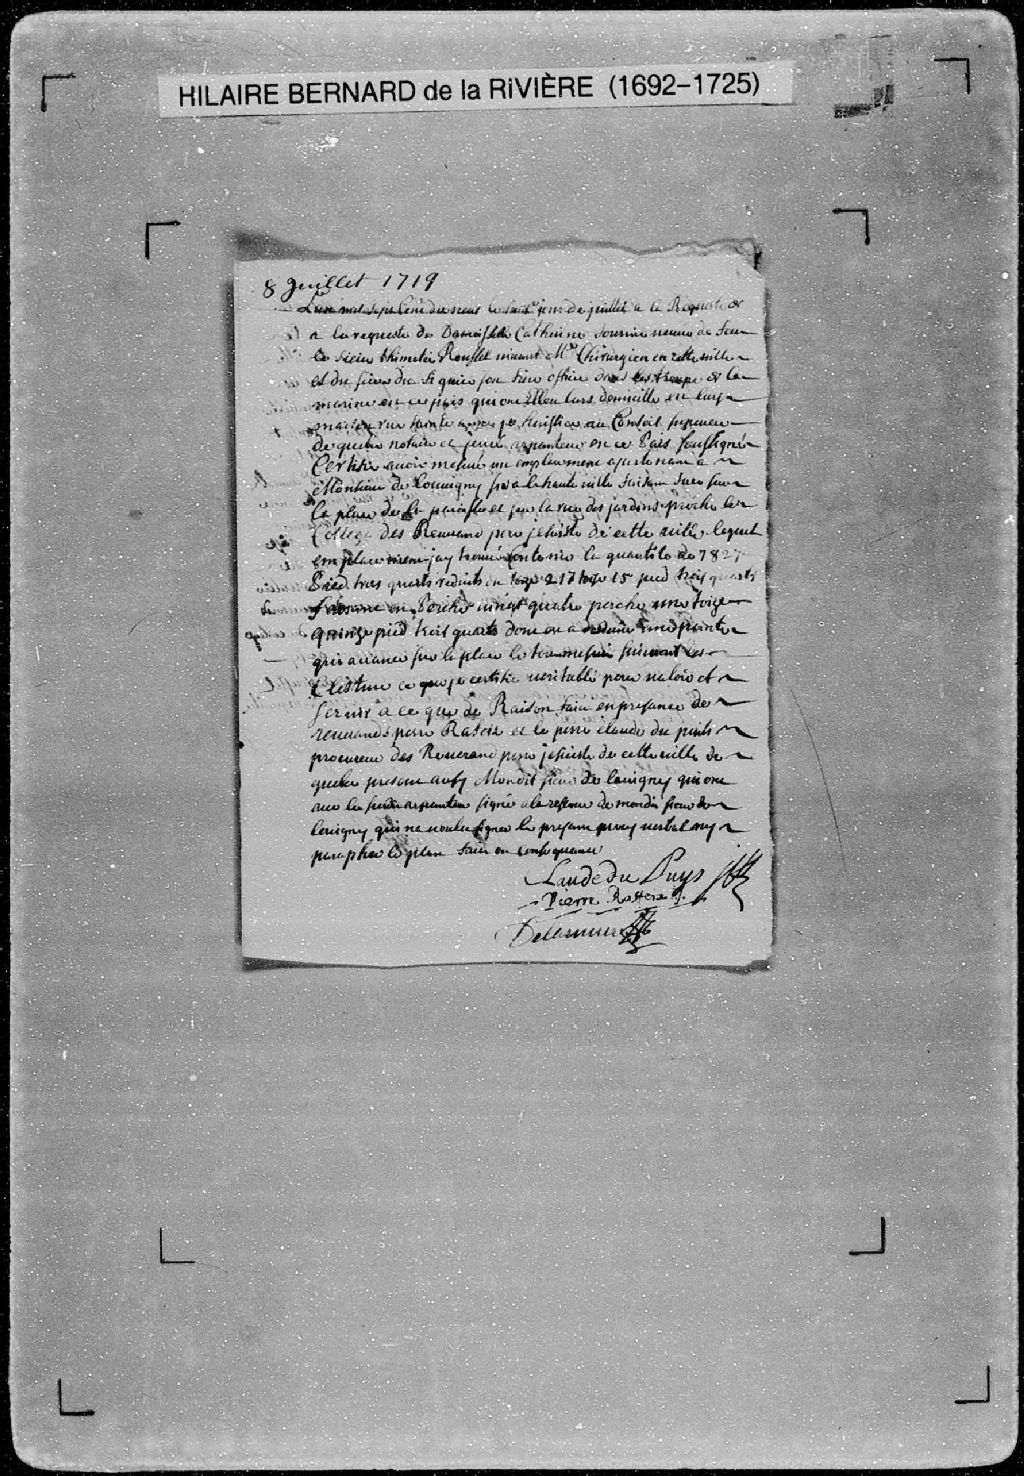 HILAIRE BERNARD de la RiVIÈRE (1692-1725)
8 Juillet 1719
Lan mil sept Cent dix neuf le huit jour de juillet a la Requeste de
a la requeste de Damoiselle Catherine fournier veuve de feu
le sieur thimotée Roussel vivant Me Chirurgien en cette ville
et du sieur officier dans les troupe de la
marine en ce pais qui ont Elleu leurs domicille en leur
maison rue sainte anne je huissier au Conseil superieur
de quebec notaire et juré arpanteur en ce Pais soussigné
Certifie avoir mesuré un emplacement apartenant a
Monsieur de Louvigny sis a la haute ville faisant face sur
la place de la paroisse et sur la rue des jardins proche le
College des Reverand pere jesuiste de cette ville lequel
emplacement jay trouvé Contenir la quantité de 7827
Pied trois quarts reduits en toize 217 toize 15 pied trois quarts
faisant en Perche vingt quatre perche une toize
quinze pied trois quarts dont on a deduit une pointe
qui avance sur la place le tout mesuré suivant
ce que je certifie veritable pour valoir et
servir a ce que de Raison fait en presance de
reverands pere Rafeix et le pere claude du puits
procureur des Reverand pere jesuiste de cette ville de
quebec present aussy Mondit sieur de louvigny qui ont
avec le susdit arpanteur signée a la reserve de mondit sieur de
louvigny qui na voulu signer le presant procez verbal ny
parapher le plan fait en consequance
Claude du Puys
Pierre
Delariviere